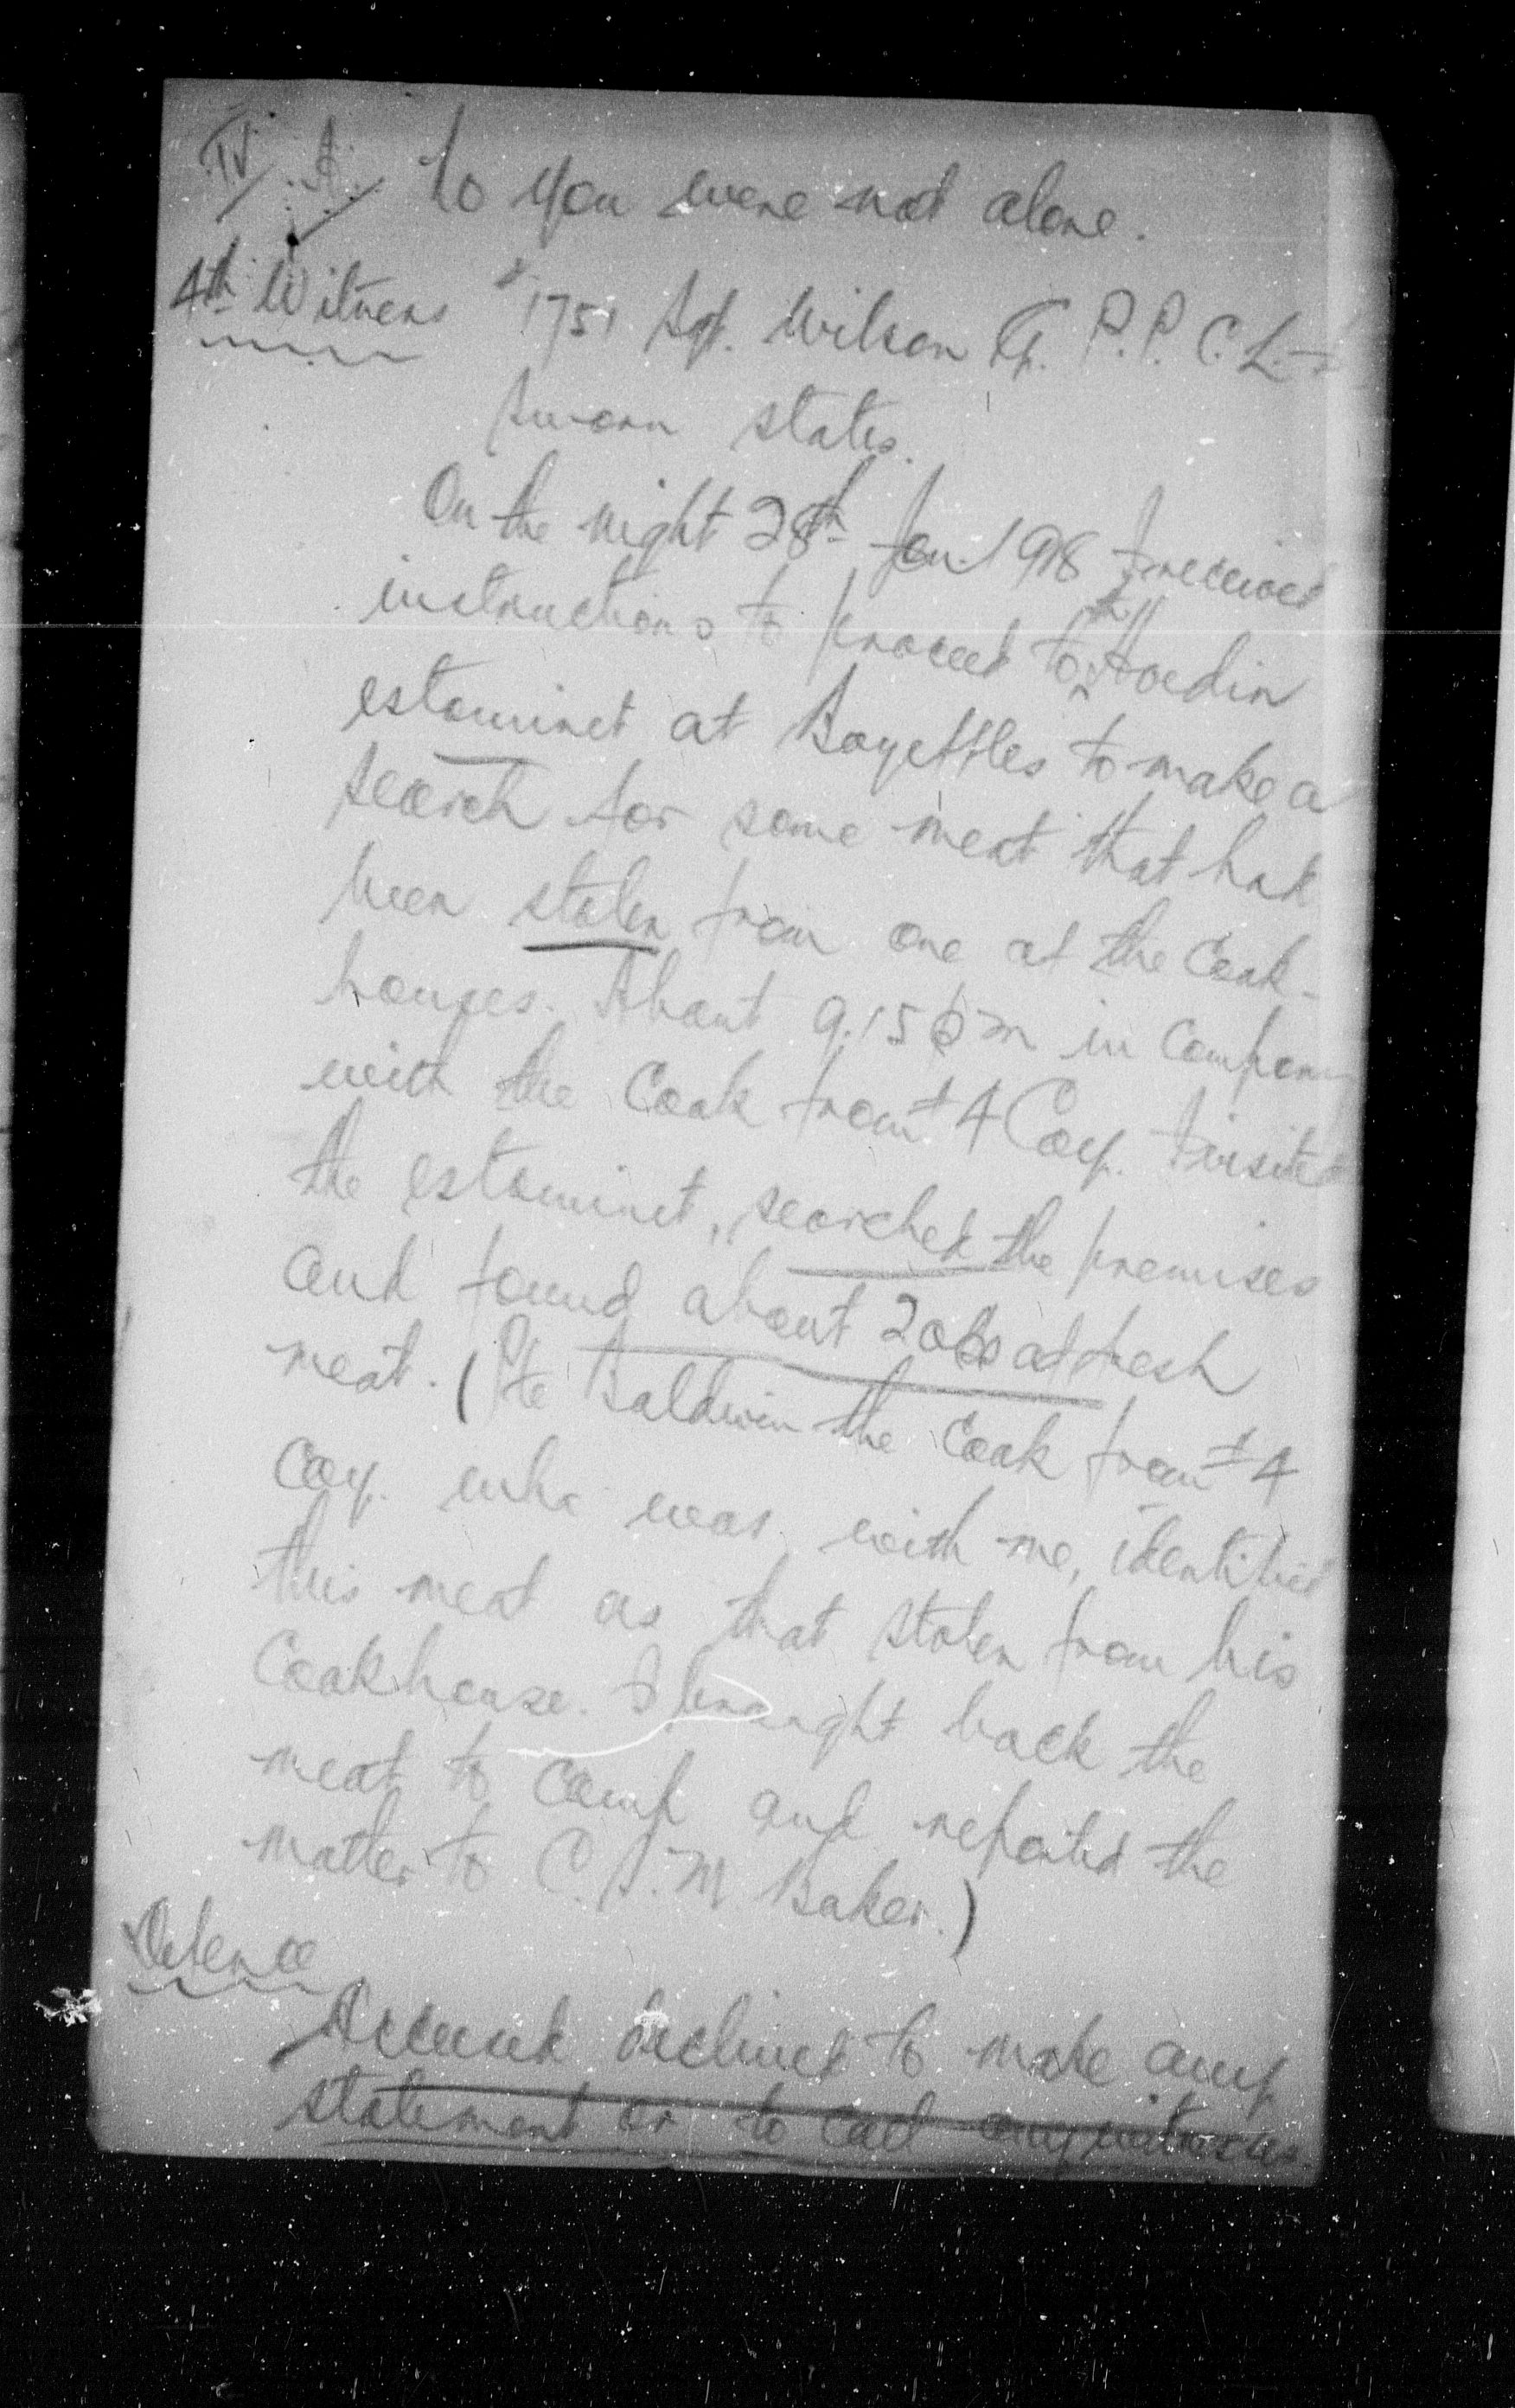 IV. A. to you were not alone.
4th Witness #1751 Sgt. Wilson G. P.P.C.L.I.
Sworn states.
On the night 28th Jan. 1918 I received
instructions to proceed to the Jardin
estaminet at Sayettles to make a
search for some meat that had
been stolen from one of the Cook-
houses. About 9.15 pm in company
with the Cook from #4 Coy. I visited
the estaminet, searched the premises
and found about 20 lbs of fresh
meat. (Pte Baldwin the Cook from #4
Coy. who was with me, identified
this meat as that stolen from his
Cookhouse. I brought back the
meat to camp and reported the
matter to C.S.M Baker.)
Defence
Accused declined to make any
statement or to call any witnesses.